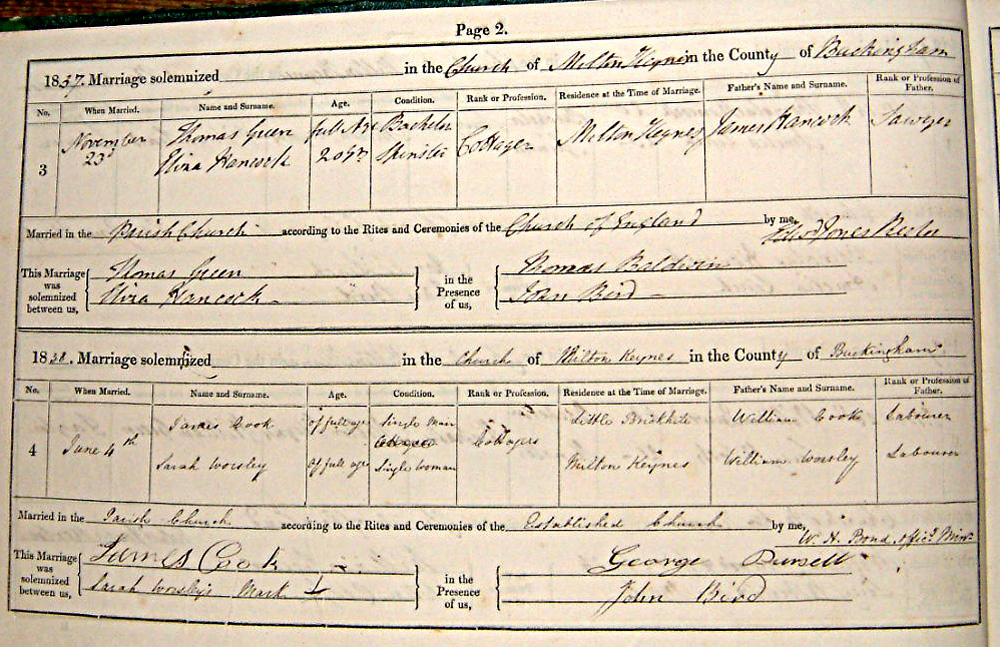 Page 2.
1837. Marriage solemnized in the Church of Milton Keynes in the County of Buckingham
No. When Married. Name and Surname. Age. Condition. Rank or Profession. Residence at the Time of Marriage. Father's Name and Surname. Rank or Profession of Father.
3 November 23d Thomas Green full Age Bachelor Cottager Milton Keynes James Hancock Sawyer
Eliza Hancock 20 yrs Spinster
Married in the Parish Church according to the Rites and Ceremonies of the Church of England by me, Jones Rector
This Marriage was solemnized between us, Thomas Green in the Presence of us, Thomas Baldwin
Eliza Hancock John Bird
1838. Marriage solemnized in the Church of Milton Keynes in the County of Buckingham
No. When Married. Name and Surname. Age. Condition. Rank or Profession. Residence at the Time of Marriage. Father's Name and Surname. Rank or Profession of Father.
4 June 4th James Cook of full age Single Man Cottagers Little Brickhill William Cook Labourer
Sarah Worsley Of full age Single Woman Milton Keynes William Worsley Labourer
Married in the Parish Church according to the Rites and Ceremonies of the Established Church by me, W. H. Bond, offic. Minr
This Marriage was solemnized between us, James Cook in the Presence of us, George Dursell
Sarah Worsley's Mark John Bird